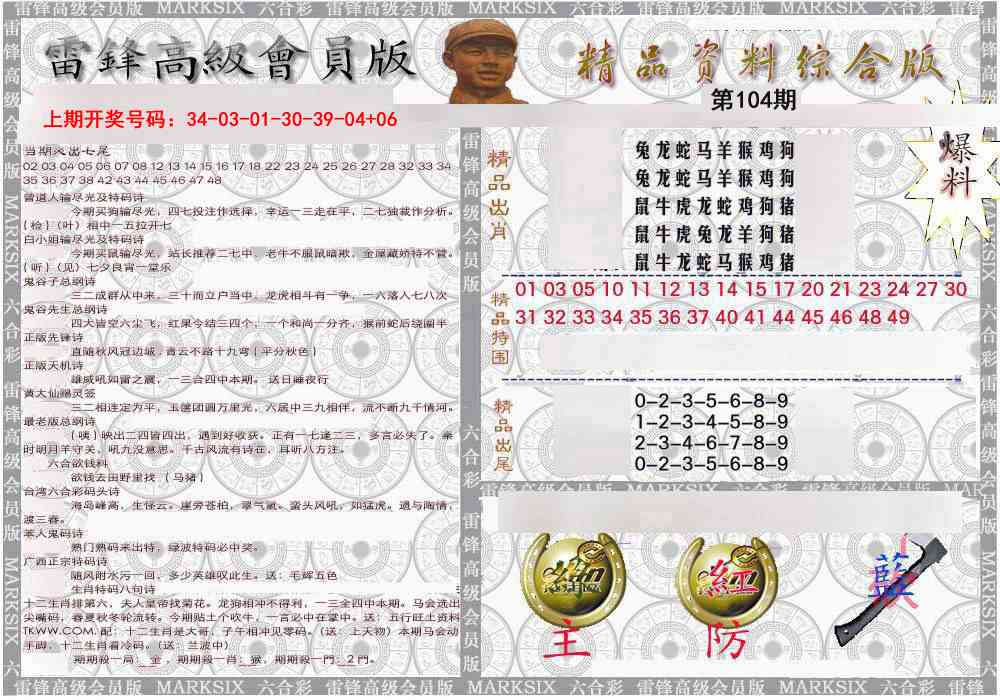 雷锋高级会员版 MARKSIX 六合彩 雷锋高级会员版 MARKSIX 六合彩 雷锋高级会员版 MARKSIX 六合彩 雷锋
雷鋒高級會員版
精品资料综合版
第104期
上期开奖号码：34-03-01-30-39-04+06
爆料
当期火出七尾
02 03 04 05 06 07 08 12 13 14 15 16 17 18 22 23 24 25 26 27 28 32 33 34
35 36 37 38 42 43 44 45 46 47 48
曾道人输尽光及特码诗
今期买狗输尽光，四七投注作选择，幸运一三走在平，二七独裁作分析。
{检}（叶）相中一五拉开七
白小姐输尽光及特码诗
今期买鼠输尽光，站长推荐二七中，老牛不服鼠暗欺，金屋藏娇特不管。
{听}（见）七夕良宵一堂乐
鬼谷子总纲诗
三二成群从中来，三十而立户当中，龙虎相斗有一争，一六落入七八次
鬼谷先生总纲诗
四大皆空六尘飞，红果今结三四个，一个和尚一分齐，猴前蛇后绕圈半
正版先锋诗
直随秋风冠边城，青云不路十九弯{平分秋色}
正版天机诗
雄威吼如雷之震，一三合四中本期。 送日睡夜行
黄大仙赐灵签
三二相连定为平，玉箧团圆万里光，六居中三九相伴，流不断九千情河。
最老版总纲诗
{咦}映出二四皆四出，遇到好收获。正有一七逢二三，多言必失了。秦
时明月羊守关，吼九没意思。千古风流有诗在，耳听八方注。
六合欲钱料
欲钱去田野里找 （马猪）
台湾六合彩码头诗
海岛峰高，生怪云。崖旁苍柏，翠气氤。蛮头风吼，如猛虎。遗与陶情，
渡三春。
苯人鬼码诗
熟门熟码来出特，绿波特码必中奖。
广西正宗特码诗
随风附水污一回，多少英雄叹此生。送：毛辉五色
生肖特码八句诗
十二生肖排第六，夫人皇帝找菊花。龙狗相冲不得利，一三全四中本期。马会选出
尖嘴码，春夏秋冬轮流转。今期贴士个吹牛，一言必中在掌中。送：五行旺土资料
TKWW.COM.配：十二生肖是大哥、子午相冲见零码。（送：上天物）本期马会动
手脚，十二生肖看冷码。（送：兰波中）
期期殺一局：金 ，期期殺一肖：猴，期期殺一門：2門。
精品出肖
兔龙蛇马羊猴鸡狗
兔龙蛇马羊猴鸡狗
鼠牛虎龙蛇鸡狗猪
鼠牛虎兔龙羊狗猪
鼠牛龙蛇马猴鸡猪
精品特围
01 03 05 10 11 12 13 14 15 17 20 21 23 24 27 30
31 32 33 34 35 36 37 40 41 44 45 46 48 49
精品出尾
0-2-3-5-6-8-9
1-2-3-4-5-8-9
2-3-4-6-7-8-9
0-2-3-5-6-8-9
雷锋高级会员版 MARKSIX 六合彩 雷锋高级会员版 MARKSIX
綠
主
紅
防
藍
雷锋高级会员版 MARKSIX 六合彩 雷锋高级会员版 MARKSIX 六合彩 雷锋高级会员版 MARKSIX 六合彩 雷锋